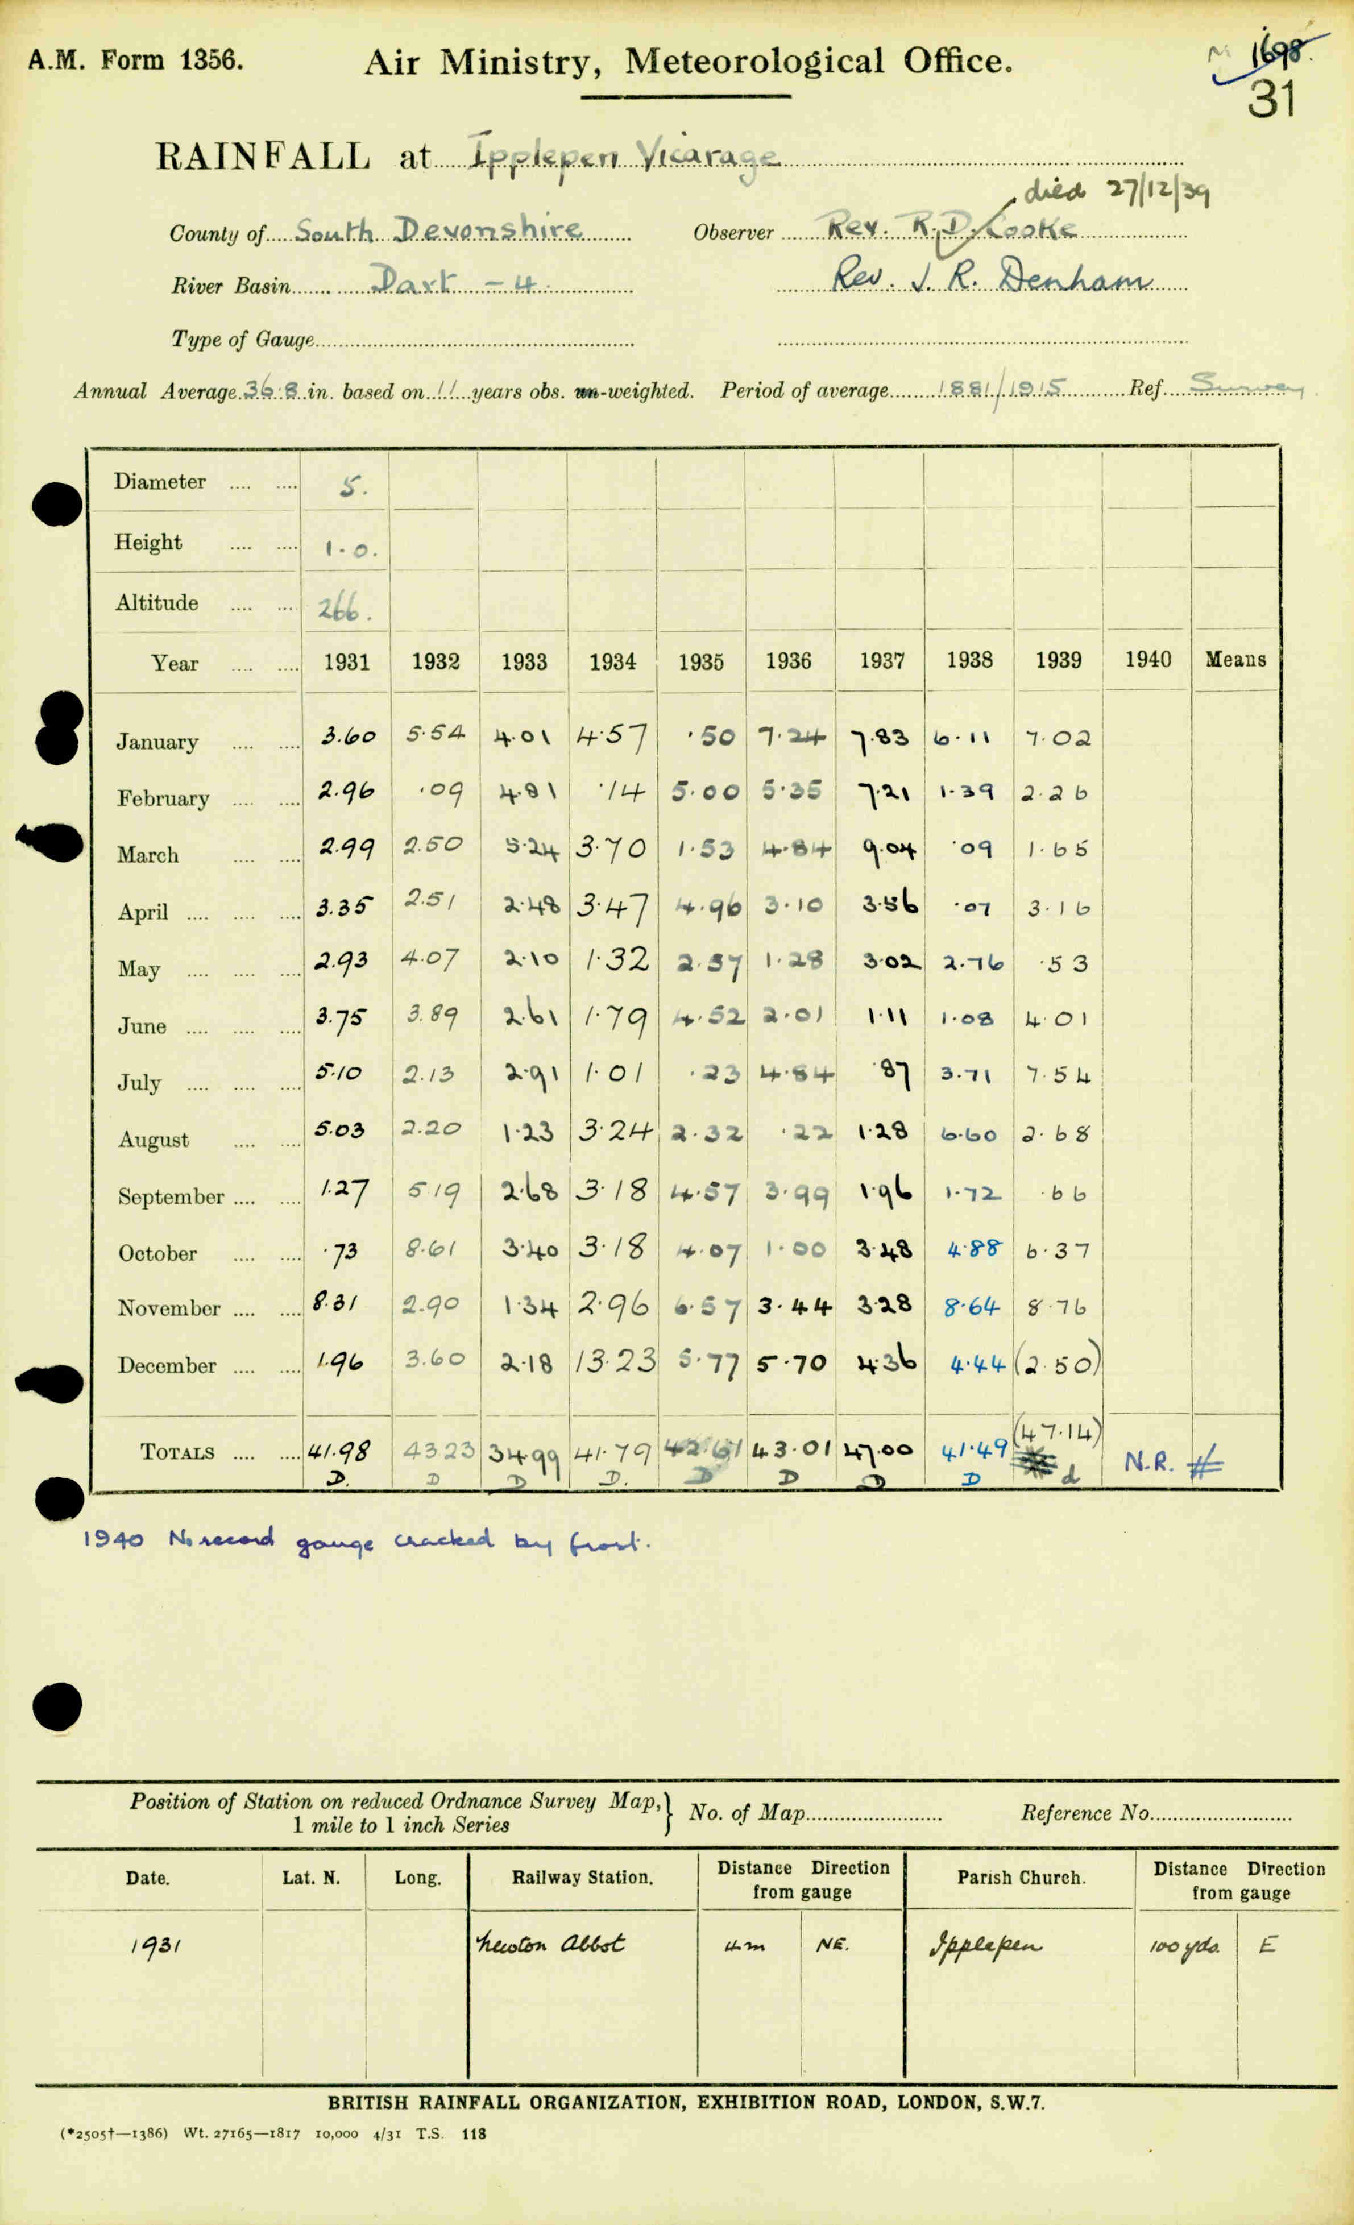 A.M. Form 1356.
Air Ministry, Meteorological Office.
1698
31
RAINFALL at Ipplepen Vicarage
died 27/12/39
County of South Devonshire Observer Rev. R. D. Cooke
River Basin Dart - 4 Rev. J. R. Denham
Type of Gauge
Annual Average 36.8 in. based on 11 years obs. un-weighted. Period of average 1881/1915 Ref. Survey
Diameter 5.
Height 1-0.
Altitude 266.
Year 1931 1932 1933 1934 1935 1936 1937 1938 1939 1940 Means
January 3.60 5.54 4.01 4.57 .50 7.24 7.83 6.11 7.02
February 2.96 .09 4.81 .14 5.00 5.35 7.21 1.39 2.26
March 2.99 2.50 5.24 3.70 1.53 4.84 9.04 .09 1.65
April 3.35 2.51 2.48 3.47 4.96 3.10 3.56 .07 3.16
May 2.93 4.07 2.10 1.32 2.57 1.28 3.02 2.76 .53
June 3.75 3.89 2.61 1.79 4.52 2.01 1.11 1.08 4.01
July 5.10 2.13 2.91 1.01 .23 4.84 .87 3.71 7.54
August 5.03 2.20 1.23 3.24 2.32 .22 1.28 6.60 2.68
September 1.27 5.19 2.68 3.18 4.57 3.99 1.96 1.72 .66
October .73 8.61 3.40 3.18 4.07 1.00 3.48 4.88 6.37
November 8.31 2.90 1.34 2.96 6.57 3.44 3.28 8.64 8.76
December 1.96 3.60 2.18 13.23 5.77 5.70 4.36 4.44 (2.50)
TOTALS 41.98 43.23 34.99 41.79 42.61 43.01 47.00 41.49 (47.14) N.R. #
D. D D D. D D D D d
1940 No record gauge cracked by frost.
Position of Station on reduced Ordnance Survey Map, 1 mile to 1 inch Series } No. of Map Reference No.
Date. Lat. N. Long. Railway Station. Distance Direction from gauge Parish Church. Distance Direction from gauge
1931 Newton Abbot 4m NE. Ipplepen 100 yds. E
BRITISH RAINFALL ORGANIZATION, EXHIBITION ROAD, LONDON, S.W.7.
(*2505†—1386) Wt. 27165—1817 10,000 4/31 T.S. 118